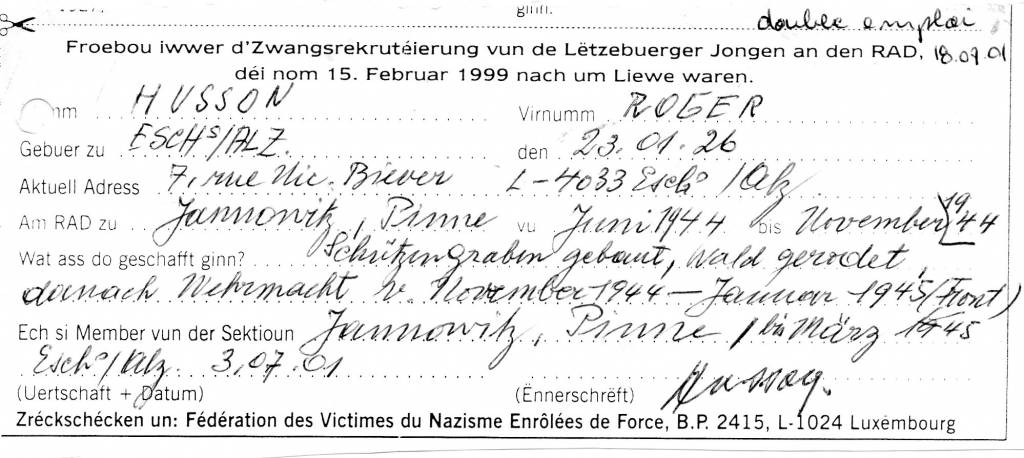 double emploi
18.07.01
Froebou iwwer d'Zwangsrekrutéierung vun de Lëtzebuerger Jongen an den RAD,
déi nom 15. Februar 1999 nach um Liewe waren.
HUSSON Virnumm ROGER
Gebuer zu ESCH s/ALZ. den 23.01.26
Aktuell Adress 7, rue Nic. Biever L-4033 Esch s/Alz
Am RAD zu Jannowitz, Pinne vu Juni 1944 bis November 1944
Wat ass do geschafft ginn? Schützengraben gebaut, Wald gerodet,
danach Wehrmacht v. November 1944 – Januar 1945 (Front)
Ech si Member vun der Sektioun Jannowitz, Pinne / bis März 1945
Esch s/Alz 3.07.01
(Uertschaft + Datum) (Ënnerschrëft) Husson
Zréckschécken un: Fédération des Victimes du Nazisme Enrôlées de Force, B.P. 2415, L-1024 Luxembourg